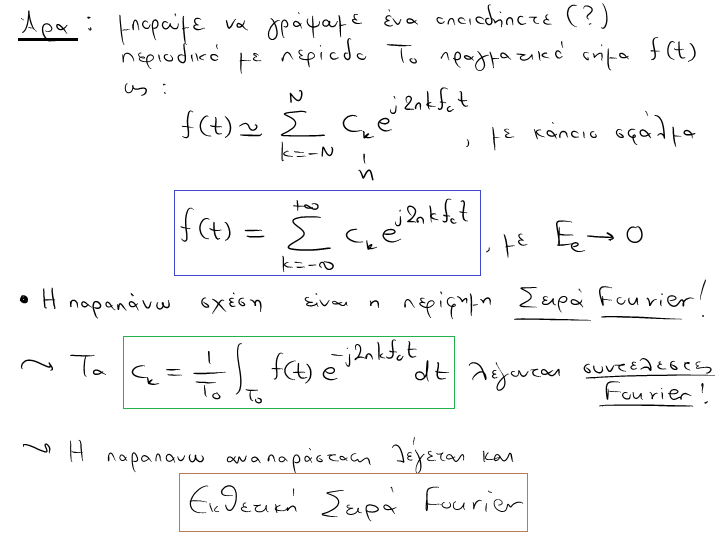 Άρα : μπορούμε να γράψαμε ένα οποιοδήποτε (?)
περιοδικό με περίοδο T₀ πραγματικό σήμα f(t)
ως :
f(t) ≃ Σ_{k=-N}^{N} c_k e^{j2πkf₀t} , με κάποιο σφάλμα
ή
f(t) = Σ_{k=-∞}^{+∞} c_k e^{j2πkf₀t} , με E_e → 0
• Η παραπάνω σχέση είναι η περίφημη Σειρά Fourier!
~> Τα c_k = 1/T₀ ∫_{T₀} f(t) e^{-j2πkf₀t} dt λέγονται συντελεστές
Fourier!
~> Η παραπανω αναπαράσταση λέγεται και
Εκθετική Σειρά Fourier